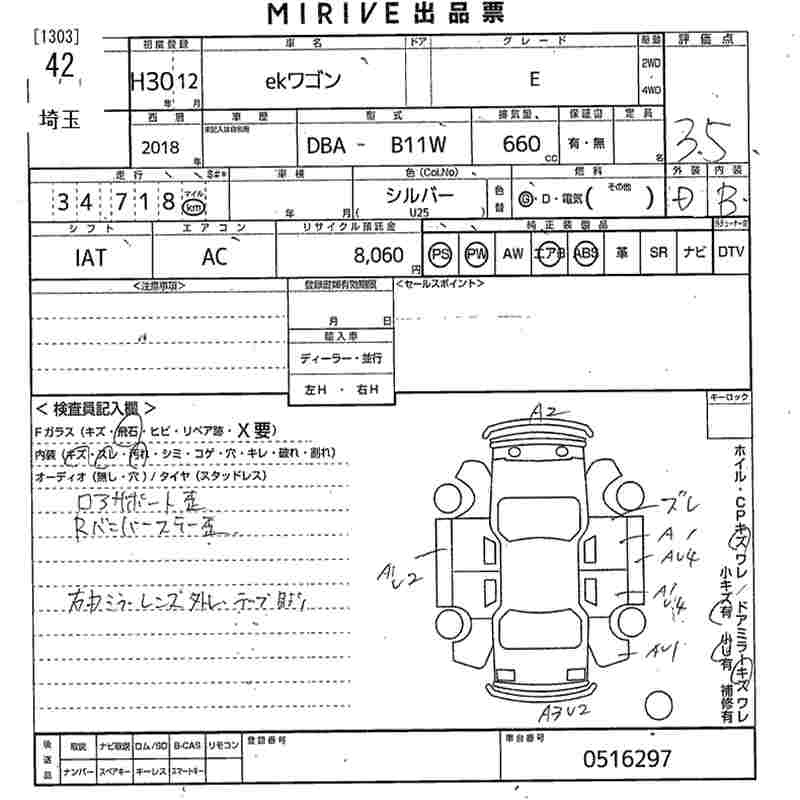 MIRIVE出品票
[1303]
42
埼玉
初度登録 車名 ドア グレード 駆動 評価点
H30 12 ekワゴン E 2WD・4WD
年 月
3.5
西暦 車歴 型式 排気量 保証書 定員
未記入は自家用
2018年 DBA - B11W 660cc 有・無 名
走行 $#* 車検 色(Col.No) 燃料 外装 内装
34,718 マイル km 年 月 シルバー (U25) 色替 G・D・電気( その他 ) D B
シフト エアコン リサイクル預託金 純正装備品
IAT AC 8,060円 PS PW AW エアB ABS 革 SR ナビ DTV
<注意事項> 登録書類有効期限 <セールスポイント>
月 日
輸入車
ディーラー・並行
左H・右H
キーロック
<検査員記入欄>
Fガラス(キズ・飛石・ヒビ・リペア跡・X要)
内装(キズ・スレ・汚れ・シミ・コゲ・穴・キレ・破れ・割れ)
オーディオ(無し・穴)/タイヤ(スタッドレス)
ロアサポート歪
右ドアミラーレンズ外レ テープ貼り
A2
ズレ
A1
AU4
A1
U4
AU1
A1
U2
A3U2
ホイル・CPキズワレ/ドアミラーキズワレ
小キズ有 小U有 補修有
後送品 取説 ナビ取説 ロム/SD B-CAS リモコン 登録番号 車台番号
ナンバー スペアキー キーレス スマートキー
0516297